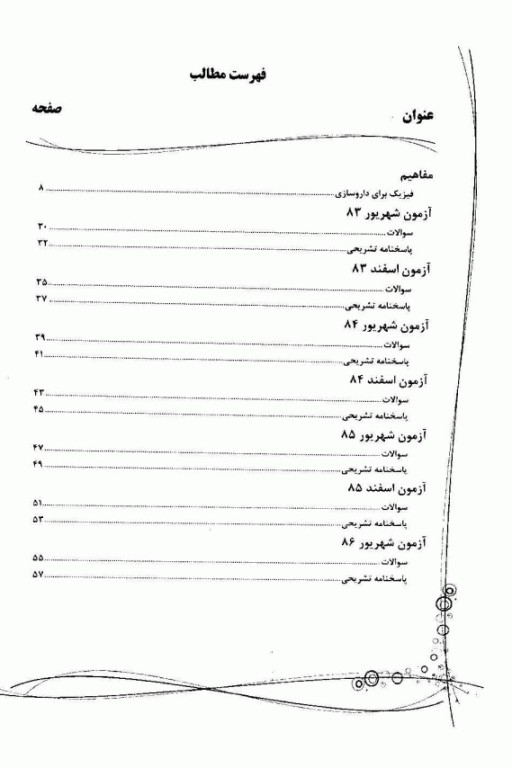 فهرست مطالب
عنوان صفحه
مفاهیم
فیزیک برای داروسازی ۸
آزمون شهریور ۸۳
سوالات ۳۰
پاسخنامه تشریحی ۳۲
آزمون اسفند ۸۳
سوالات ۳۵
پاسخنامه تشریحی ۳۷
آزمون شهریور ۸۴
سوالات ۳۹
پاسخنامه تشریحی ۴۱
آزمون اسفند ۸۴
سوالات ۴۳
پاسخنامه تشریحی ۴۵
آزمون شهریور ۸۵
سوالات ۴۷
پاسخنامه تشریحی ۴۹
آزمون اسفند ۸۵
سوالات ۵۱
پاسخنامه تشریحی ۵۳
آزمون شهریور ۸۶
سوالات ۵۵
پاسخنامه تشریحی ۵۷